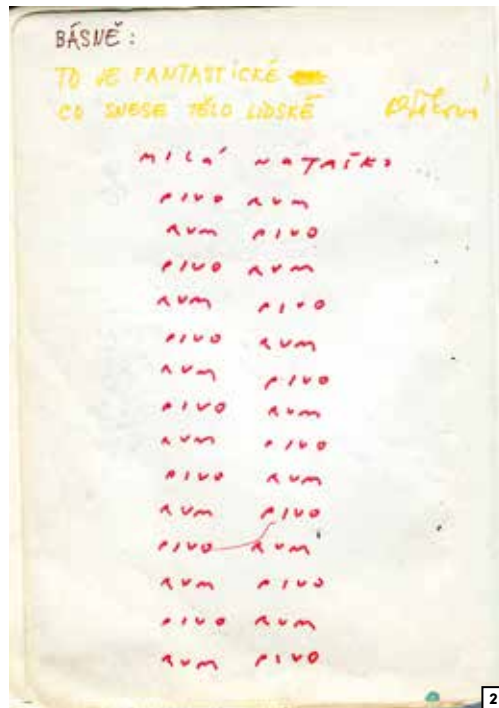 BÁSNĚ:
TO JE FANTASTICKÉ
CO SNESE TĚLO LIDSKÉ
MILÁ NATAŠKO
PIVO RUM
RUM PIVO
PIVO RUM
RUM PIVO
PIVO RUM
RUM PIVO
PIVO RUM
RUM PIVO
PIVO RUM
RUM PIVO
PIVO RUM
RUM PIVO
PIVO RUM
RUM PIVO
2